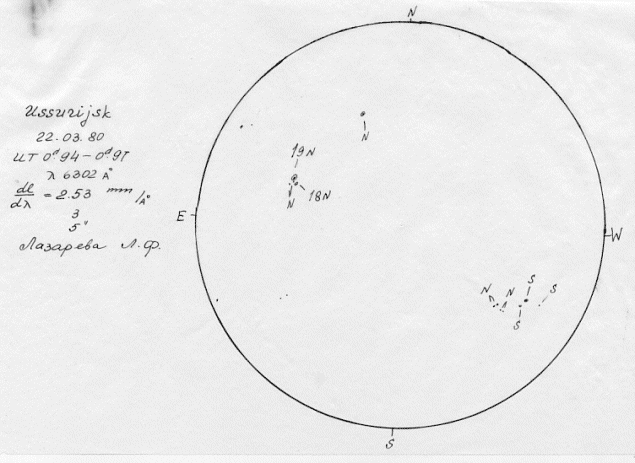 Ussurijsk
22.03.80
UT 0ᵈ94 – 0ᵈ97
λ 6302 A°
dl/dλ = 2.53 mm/A°
3
5"
Лазарева Л.Ф.
N
N
19N
18N
N
N
E
W
N
N
S
S
S
S